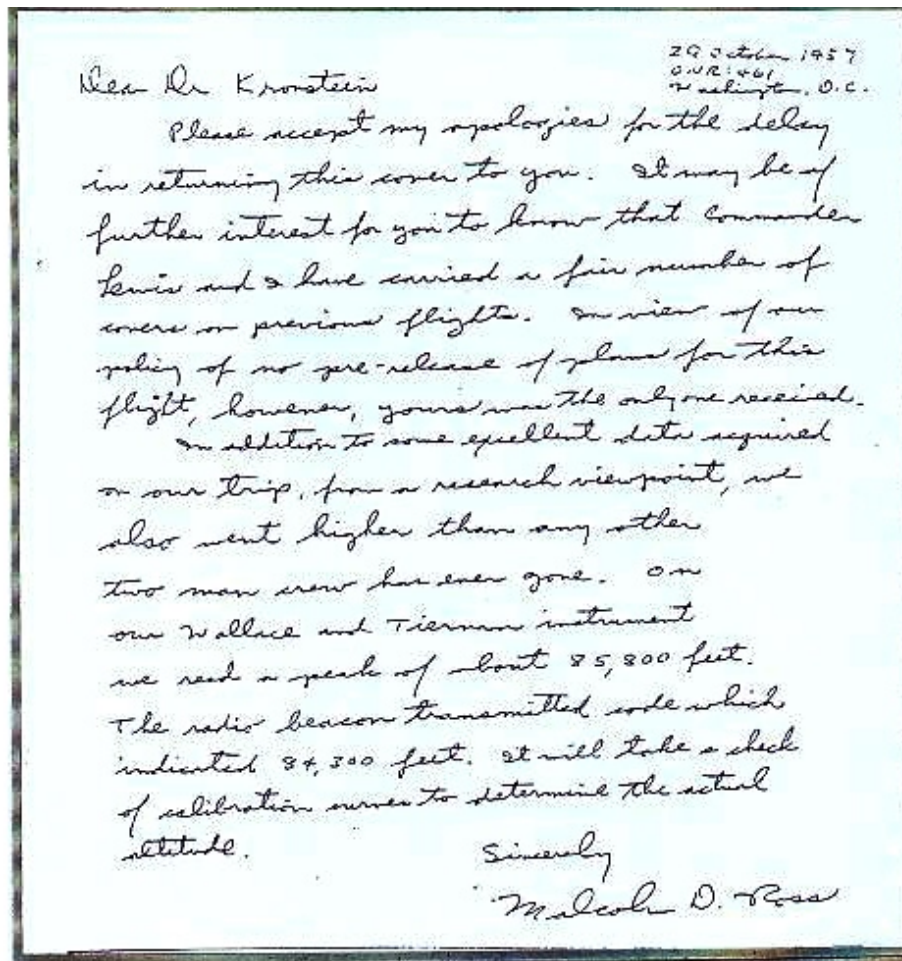 29 October 1957
ONR:461
Washington, D.C.
Dear Dr Kronstein
Please accept my apologies for the delay
in returning this cover to you. It may be of
further interest for you to know that Commander
Lewis and I have carried a fair number of
covers on previous flights. In view of our
policy of no pre-release of plans for this
flight, however, yours was the only one received.
In addition to some excellent data acquired
on our trip, from a research viewpoint, we
also went higher than any other
two man crew has ever gone. On
our Wallace and Tiernan instrument
we read a peak of about 85,800 feet.
The radio beacon transmitted code which
indicated 84,300 feet. It will take a check
of calibration curves to determine the actual
altitude.
Sincerely
Malcolm D. Ross